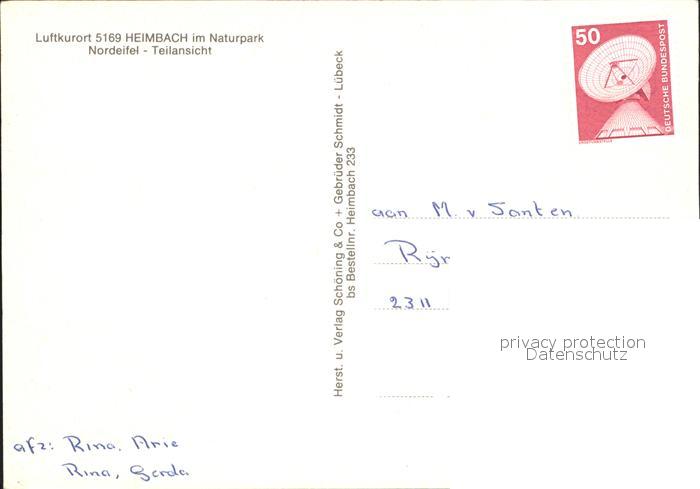 Luftkurort 5169 HEIMBACH im Naturpark
Nordeifel - Teilansicht
Herst. u. Verlag Schöning & Co + Gebrüder Schmidt - Lübeck
bs Bestellnr. Heimbach 233
50
DEUTSCHE BUNDESPOST
aan M. v Santen
2311
privacy protection
Datenschutz
afz: Rina, Arie
Rina, Gerda